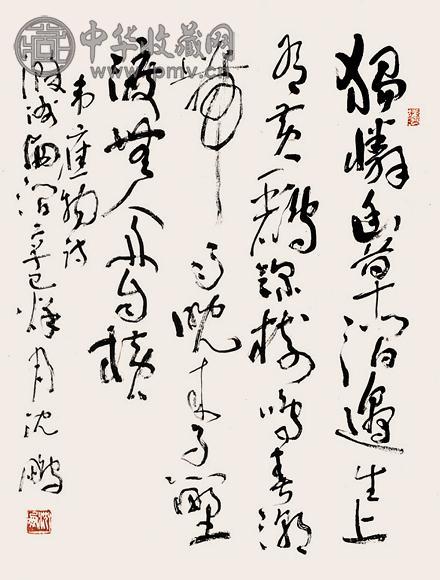 獨憐幽草澗邊生上
有黃鸝深樹鳴春潮
帶雨晚来急野
渡無人舟自横
韦應物詩
滁州西澗 辛巳 月沈鵬
中华收藏网